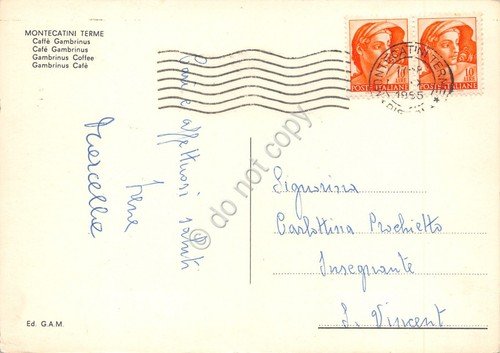 MONTECATINI TERME
Caffè Gambrinus
Café Gambrinus
Gambrinus Coffee
Gambrinus Cafè
Baci e affettuosi saluti
Irene
Marcella
10
LIRE
POSTE ITALIANE
10
LIRE
POSTE ITALIANE
MONTECATINI TERME
1965
Signorina
Carlottina Prochietto
Insegnante
S. Vincent
Ed. G.A.M.
© do not copy